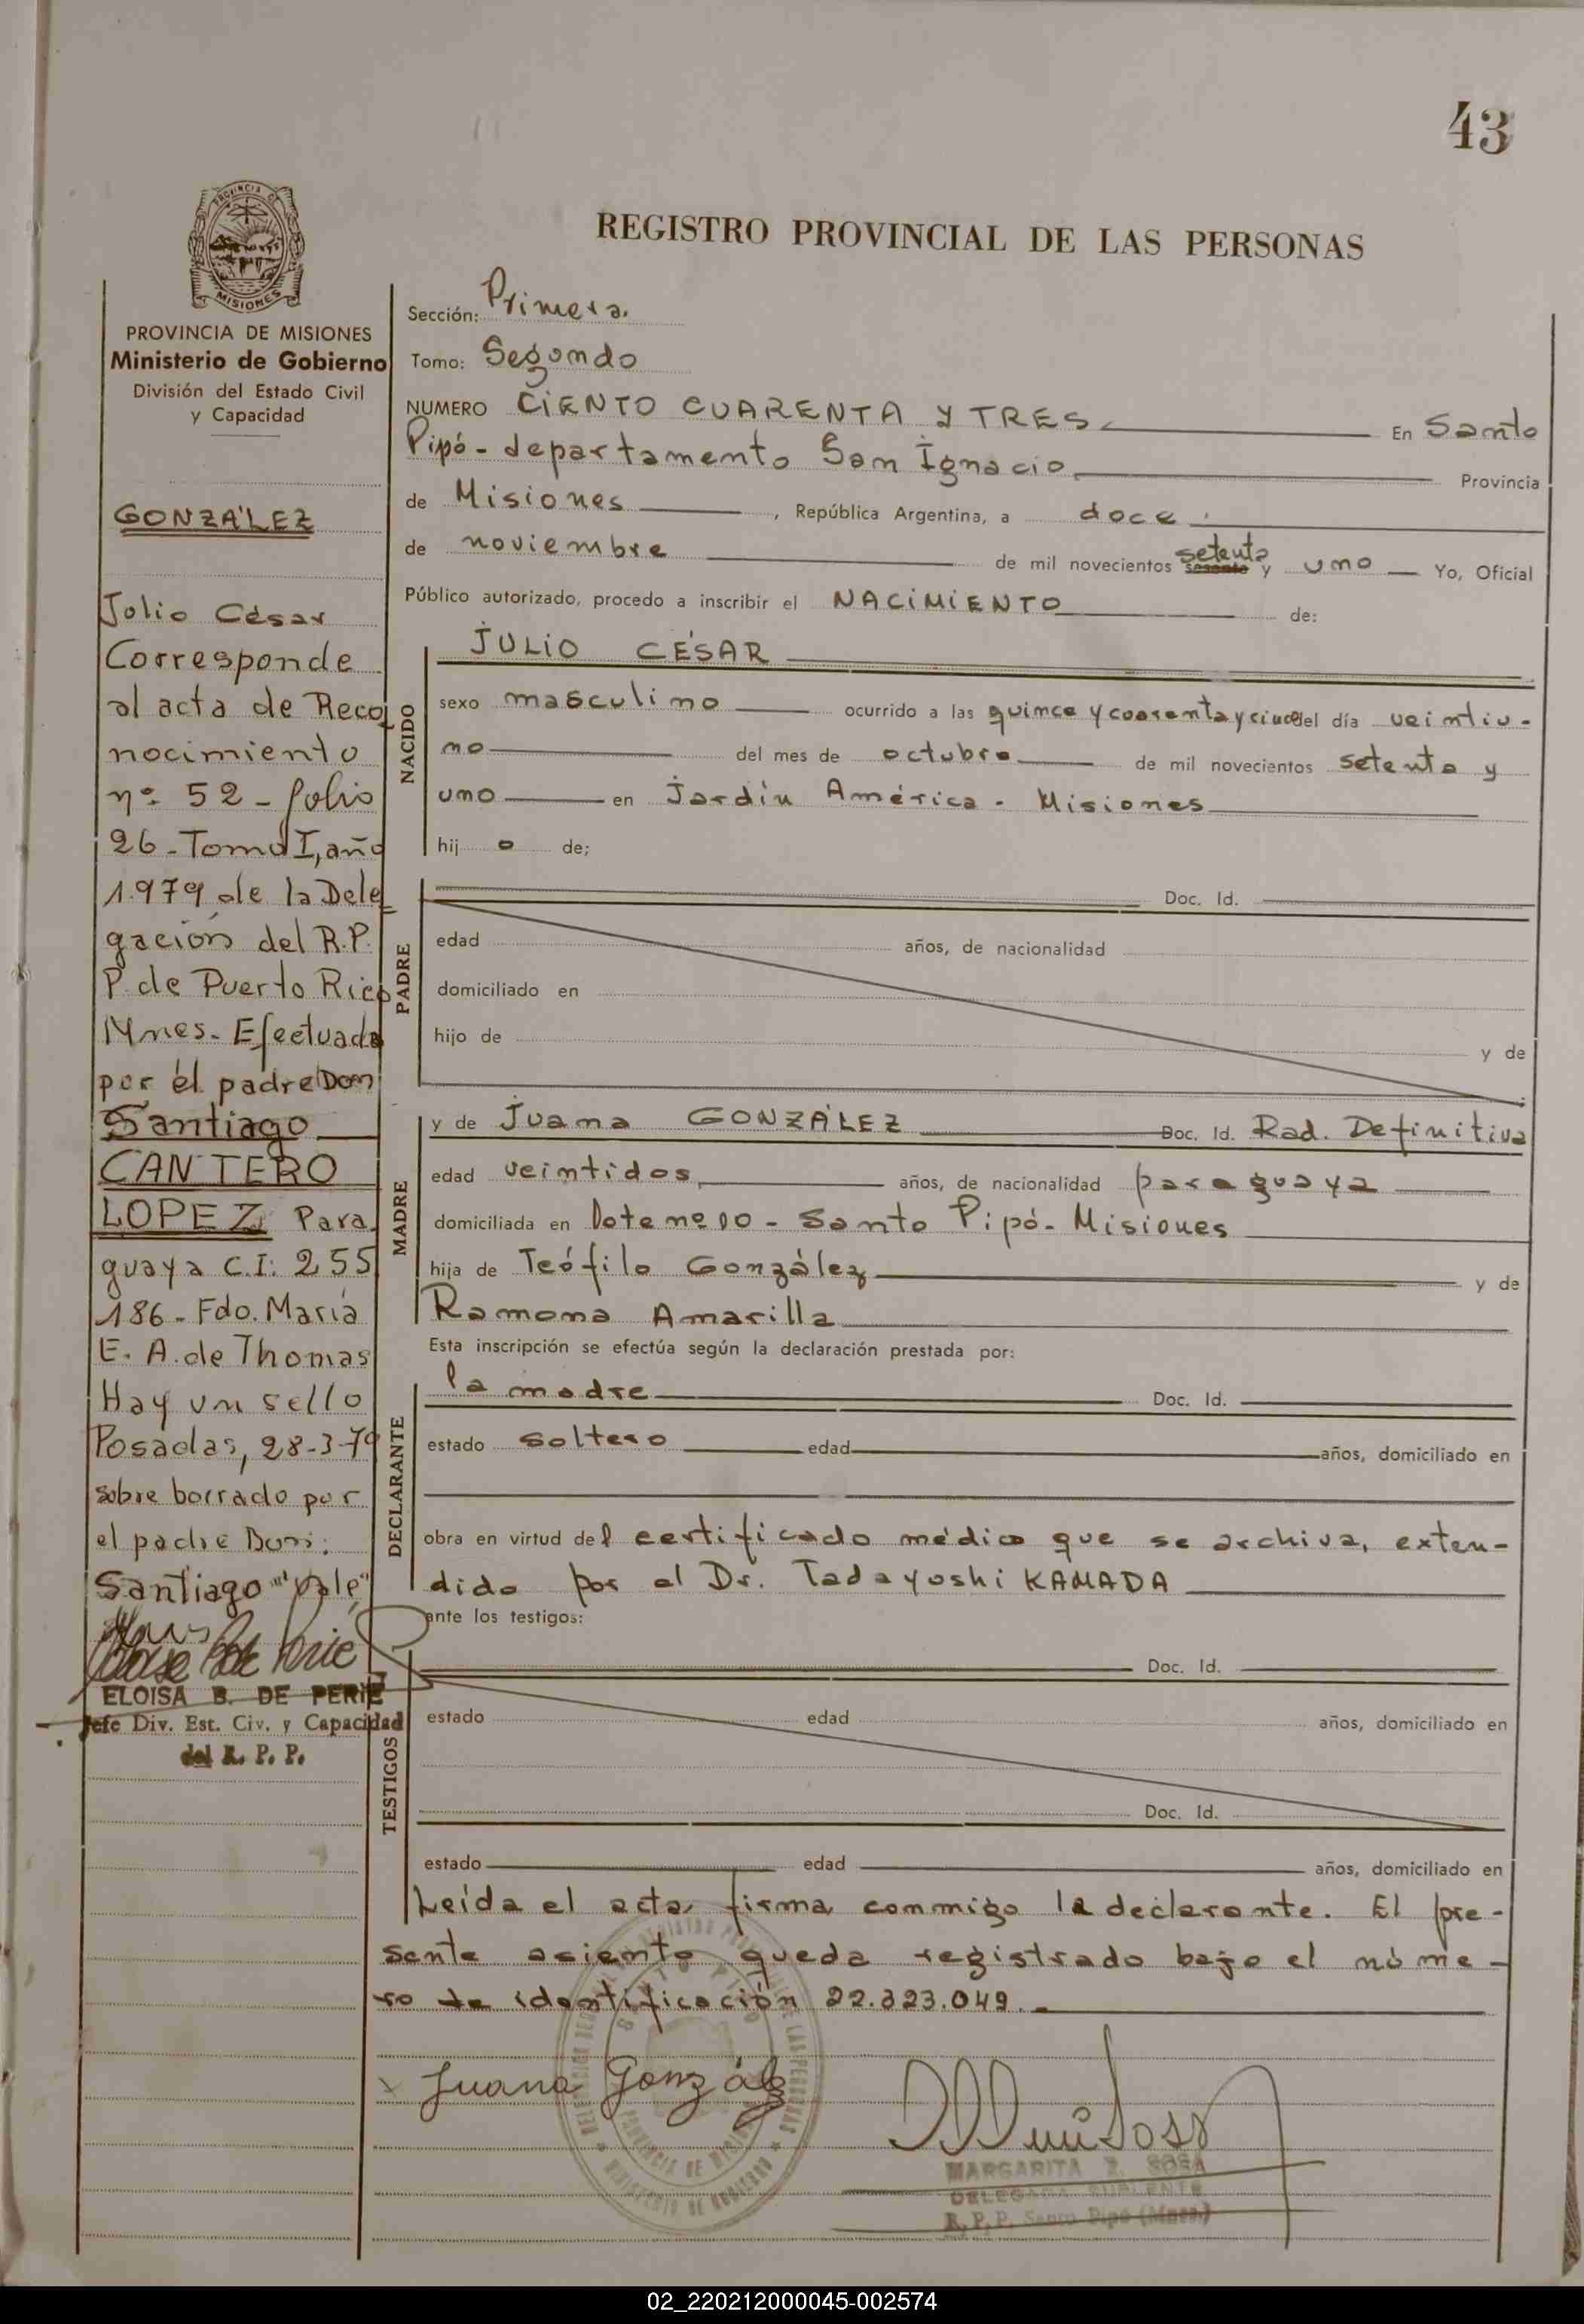 43
PROVINCIA DE
MISIONES
PROVINCIA DE MISIONES
Ministerio de Gobierno
División del Estado Civil
y Capacidad
GONZÁLEZ
Julio César
Corresponde
al acta de Reco
nocimiento
nº 52 - folio
26 - Tomo I, año
1.979 de la Dele
gación del R.P.
P. de Puerto Rico
Mnes. Efectuada
por el padre Don
Santiago
CANTERO
LOPEZ Para
guaya C.I: 255
186 - Fdo. María
E. A. de Thomas
Hay un sello
Posadas, 28-3-79
sobre borrado por
el padre Don:
Santiago "Vale"
ELOISA B. DE PERIÉ
Jefe Div. Est. Civ. y Capacidad
del R. P. P.
REGISTRO PROVINCIAL DE LAS PERSONAS
Sección: Primera.
Tomo: Segundo
NUMERO CIENTO CUARENTA Y TRES En Santo
Pipó - departamento San Ignacio Provincia
de Misiones , República Argentina, a doce
de noviembre de mil novecientos setenta y uno Yo, Oficial
Público autorizado, procedo a inscribir el NACIMIENTO de:
NACIDO
JULIO CÉSAR
sexo masculino ocurrido a las quince y cuarenta y cinco del día veintiu-
no del mes de octubre de mil novecientos setenta y
uno en Jardín América - Misiones
hij o de;
PADRE
Doc. Id.
edad años, de nacionalidad
domiciliado en
hijo de y de
MADRE
y de Juana GONZÁLEZ Doc. Id. Rad. Definitiva
edad veintidos años, de nacionalidad paraguaya
domiciliada en Santo Pipó - Misiones
hija de Teófilo González y de
Ramona Amarilla
Esta inscripción se efectúa según la declaración prestada por:
DECLARANTE
la madre Doc. Id.
estado soltera edad años, domiciliado en
obra en virtud del certificado médico que se archiva, exten-
dido por el Dr. Tadayoshi KAMADA
ante los testigos:
TESTIGOS
Doc. Id.
estado edad años, domiciliado en
Doc. Id.
estado edad años, domiciliado en
Leída el acta, firma conmigo la declarante. El pre-
sente asiento queda registrado bajo el núme-
ro de identificación 22.323.049.
Juana González
MARGARITA Z. SOSA
DELEGADA SUPLENTE
R. P. P. Santo Pipó (Mnes.)
02_220212000045-002574